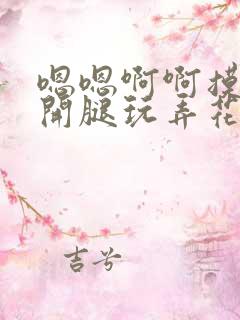 嗯嗯啊啊摸
開腿玩弄花
吉兮